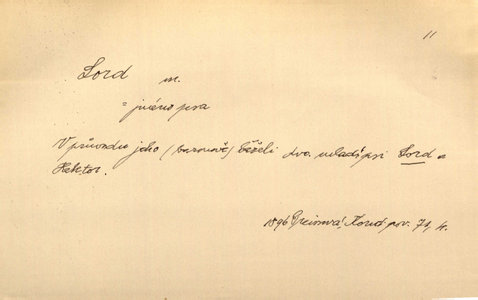 11
Lord m.
= jméno psa
V průvodu jeho (baronově) běželi dva mladí psi Lord a
Hektor.
1896 Preissová, Korut. pov. 71, 4.